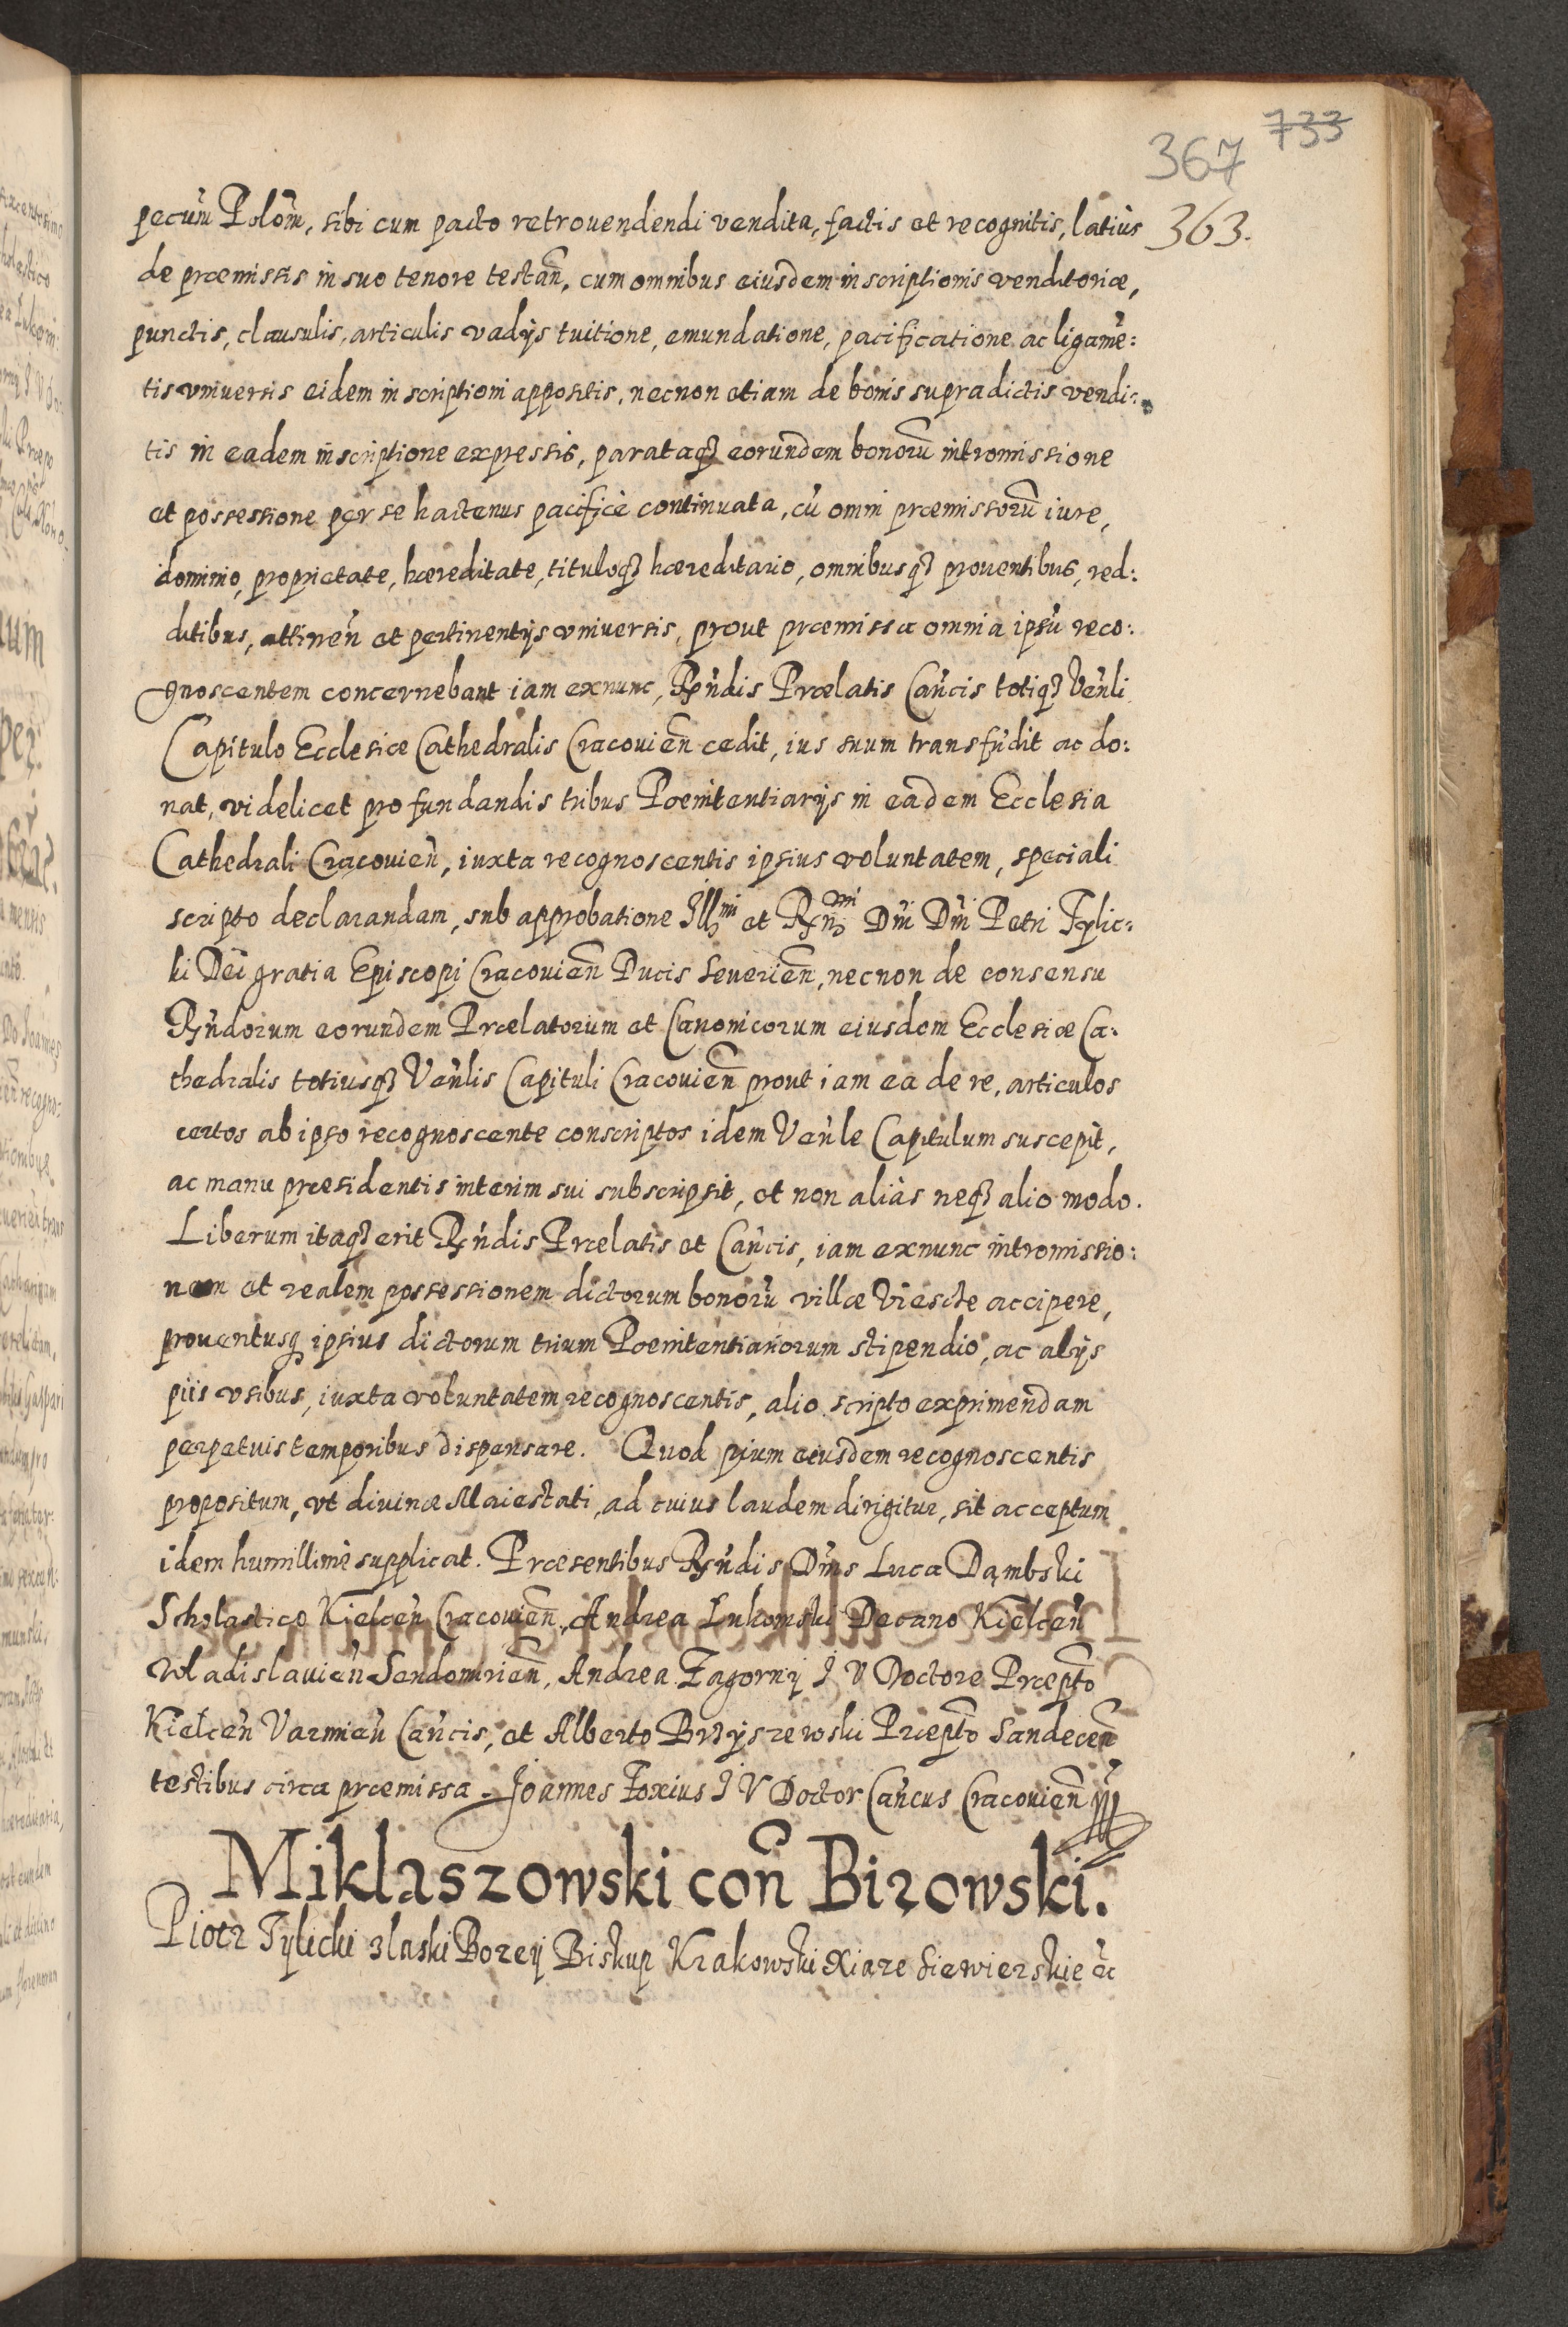 733
367
363.
pecuń Polōm, sibi cum pacto retrouendendi vendita, factis et recognitis, latiùs
de præmissis in suo tenore testan̄, cum omnibus eiusdem inscriptionis venditoriæ,
punctis, clausulis, articulis vadijs tuitione, emundatione, pacificatione ac ligamē:
tis vniuersis eidem inscriptioni appositis, necnon etiam de bonis supradictis vendi:
tis in eadem inscriptione expressis, parataqꝫ eorundem bonorū intromissione
et possessione per se hactenus pacificè continuata, cū omni præmissorū iure,
dominio, proprietate, hæreditate, tituloqꝫ hæreditario, omnibusqꝫ prouentibus, red:
ditibus, attinen̄ et pertinentijs vniuersis, prout præmissa omnia ipsū reco:
gnoscentem concernebant iam exnunc, Rn̄dis Prælatis Can̄cis totiqꝫ Ven̄li
Capitulo Ecclesiæ Cathedralis Cracouien̄ cedit, ius suum transfūdit ac do:
nat, videlicet pro fundandis tribus Pœnitentiarijs in eadem Ecclesia
Cathedrali Cracouien̄, iuxta recognoscentis ipsius voluntatem, speciali
scripto declarandam, sub approbatione Illmi et Rn̄dmi Dn̄i Dn̄i Petri Tylic:
ki Dei gratia Episcopi Cracouien̄ Ducis Seuerien̄, necnon de consensu
Rn̄dorum eorundem Prælatorum et Canonicorum eiusdem Ecclesiæ Ca:
thedralis totiusqꝫ Ven̄lis Capituli Cracouien̄ prout iam ea de re, articulos
certos ab ipso recognoscente conscriptos idem Ven̄le Capitulum suscepit,
ac manu præsidentis interim sui subscripsit, et non aliàs neqꝫ alio modo.
Liberum itaqꝫ erit Rn̄dis Prælatis et Can̄cis, iam exnunc intromissio:
nem et realem possessionem dictorum bonorū villæ Uiescte accipere,
prouentusqꝫ ipsius dictorum trium Pœnitentiariorum stipendio, ac alijs
piis vsibus, iuxta voluntatem recognoscentis, alio scripto exprimendam
perpetuis temporibus dispensare. Quod pium eiusdem recognoscentis
propositum, vt diuinæ Maiestati, ad cuius laudem dirigitur, sit acceptum
idem humillimè supplicat. Præsentibus Rn̄dis Dn̄is Luca Dąmbski
Scholastico Kielcen̄ Cracouien̄, Andrea Lukomski Decano Kielcen̄
Wladislauien̄ Sendomirien̄, Andrea Zagorny I V Doctore Præpto
Kielcen̄ Varmien̄ Can̄cis, et Alberto Brzyszewski Præpto Sandecen̄
testibus circa præmissa. Joannes Foxius I V Doctor Can̄cus Cracouien̄
Miklaszowski con̄ Bizowski.
Piotr Tylicki z laski Bozey Biskup Krakowski Xiaze Siewierskie ēc